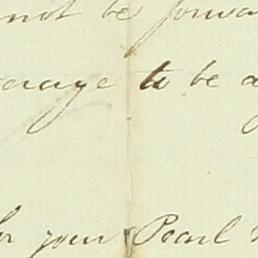 not be forwa
to be a
your Pearl